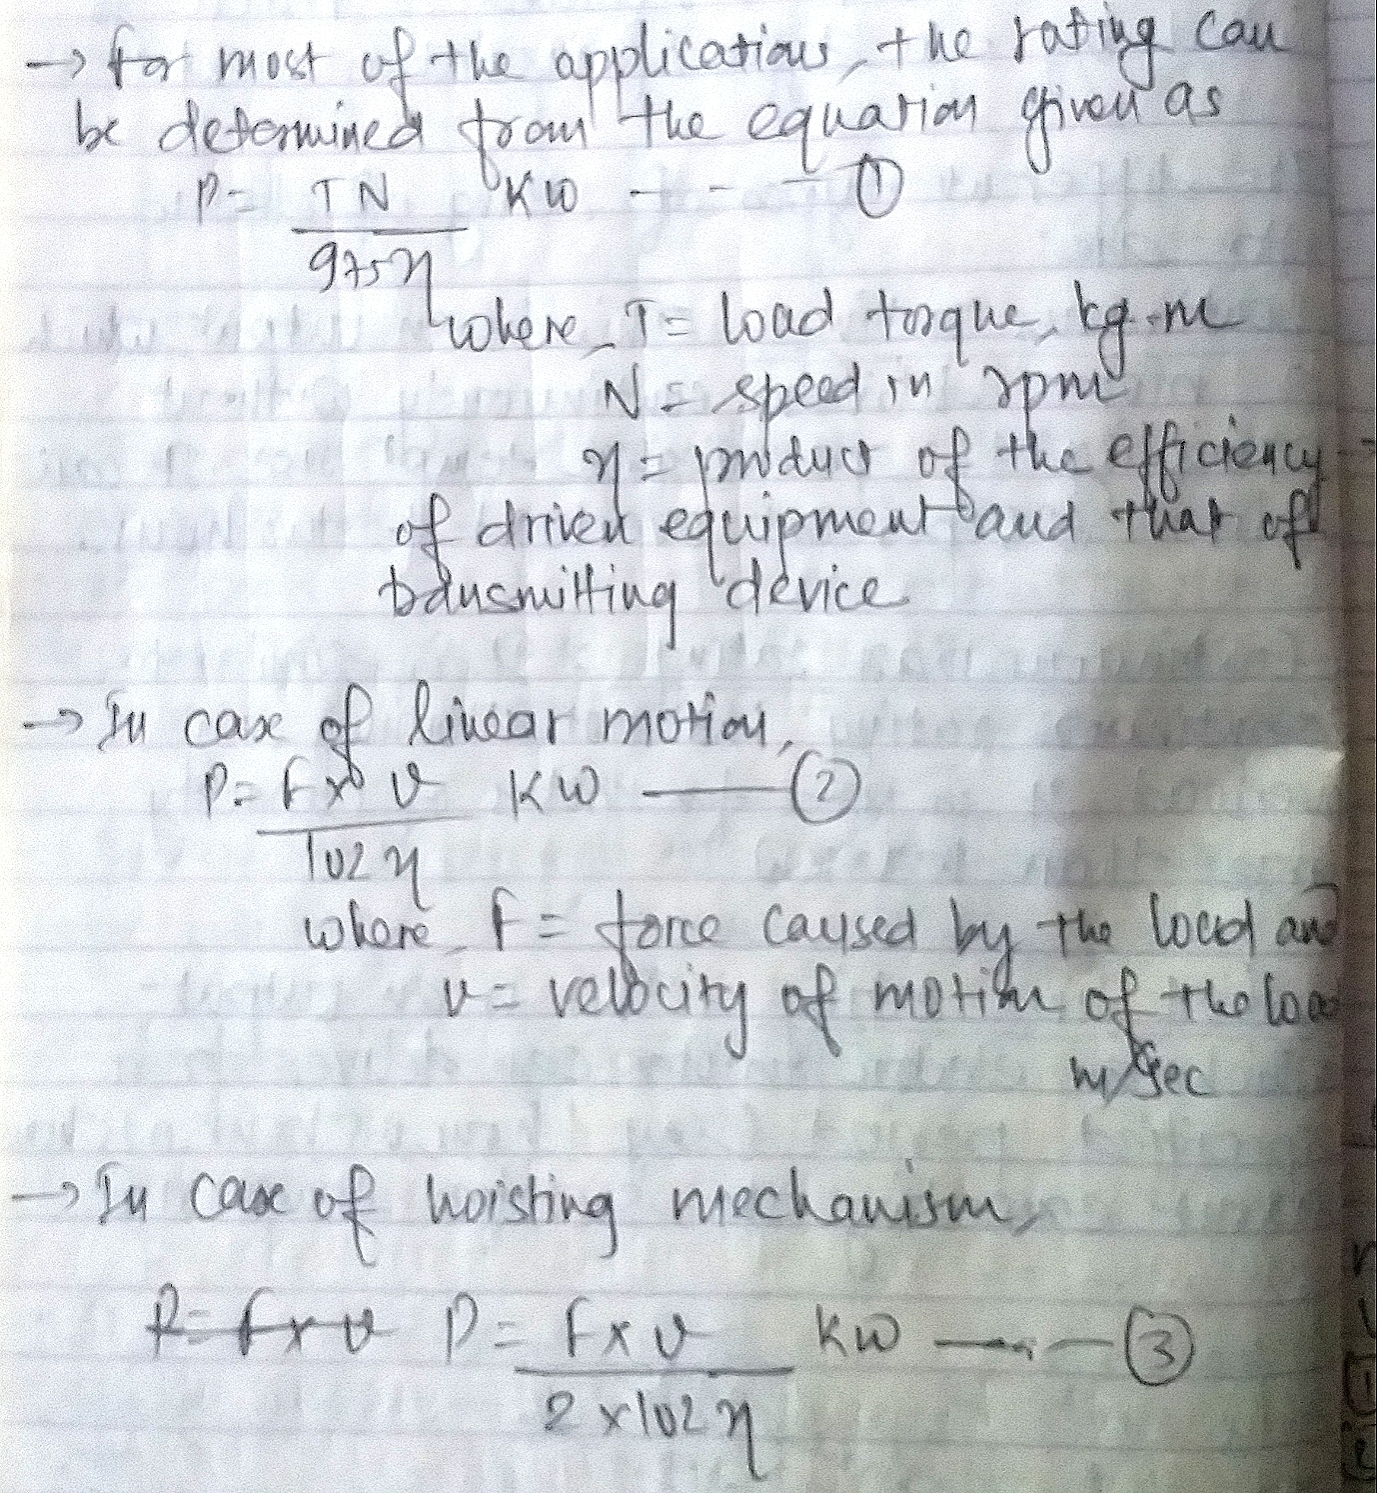 → for most of the applications, the rating can
be determined from the equation given as
P = TN / 975η KW - - - ①
where, T = load torque, kg-m
N = speed in rpm
η = product of the efficiency
of driven equipment and that of
transmitting device
→ In case of linear motion,
P = F x v / 102 η KW — ②
where, F = force caused by the load and
v = velocity of motion of the load
m/sec
→ In case of hoisting mechanism,
P = F x v P = F x v / 2 x 102 η KW — ③